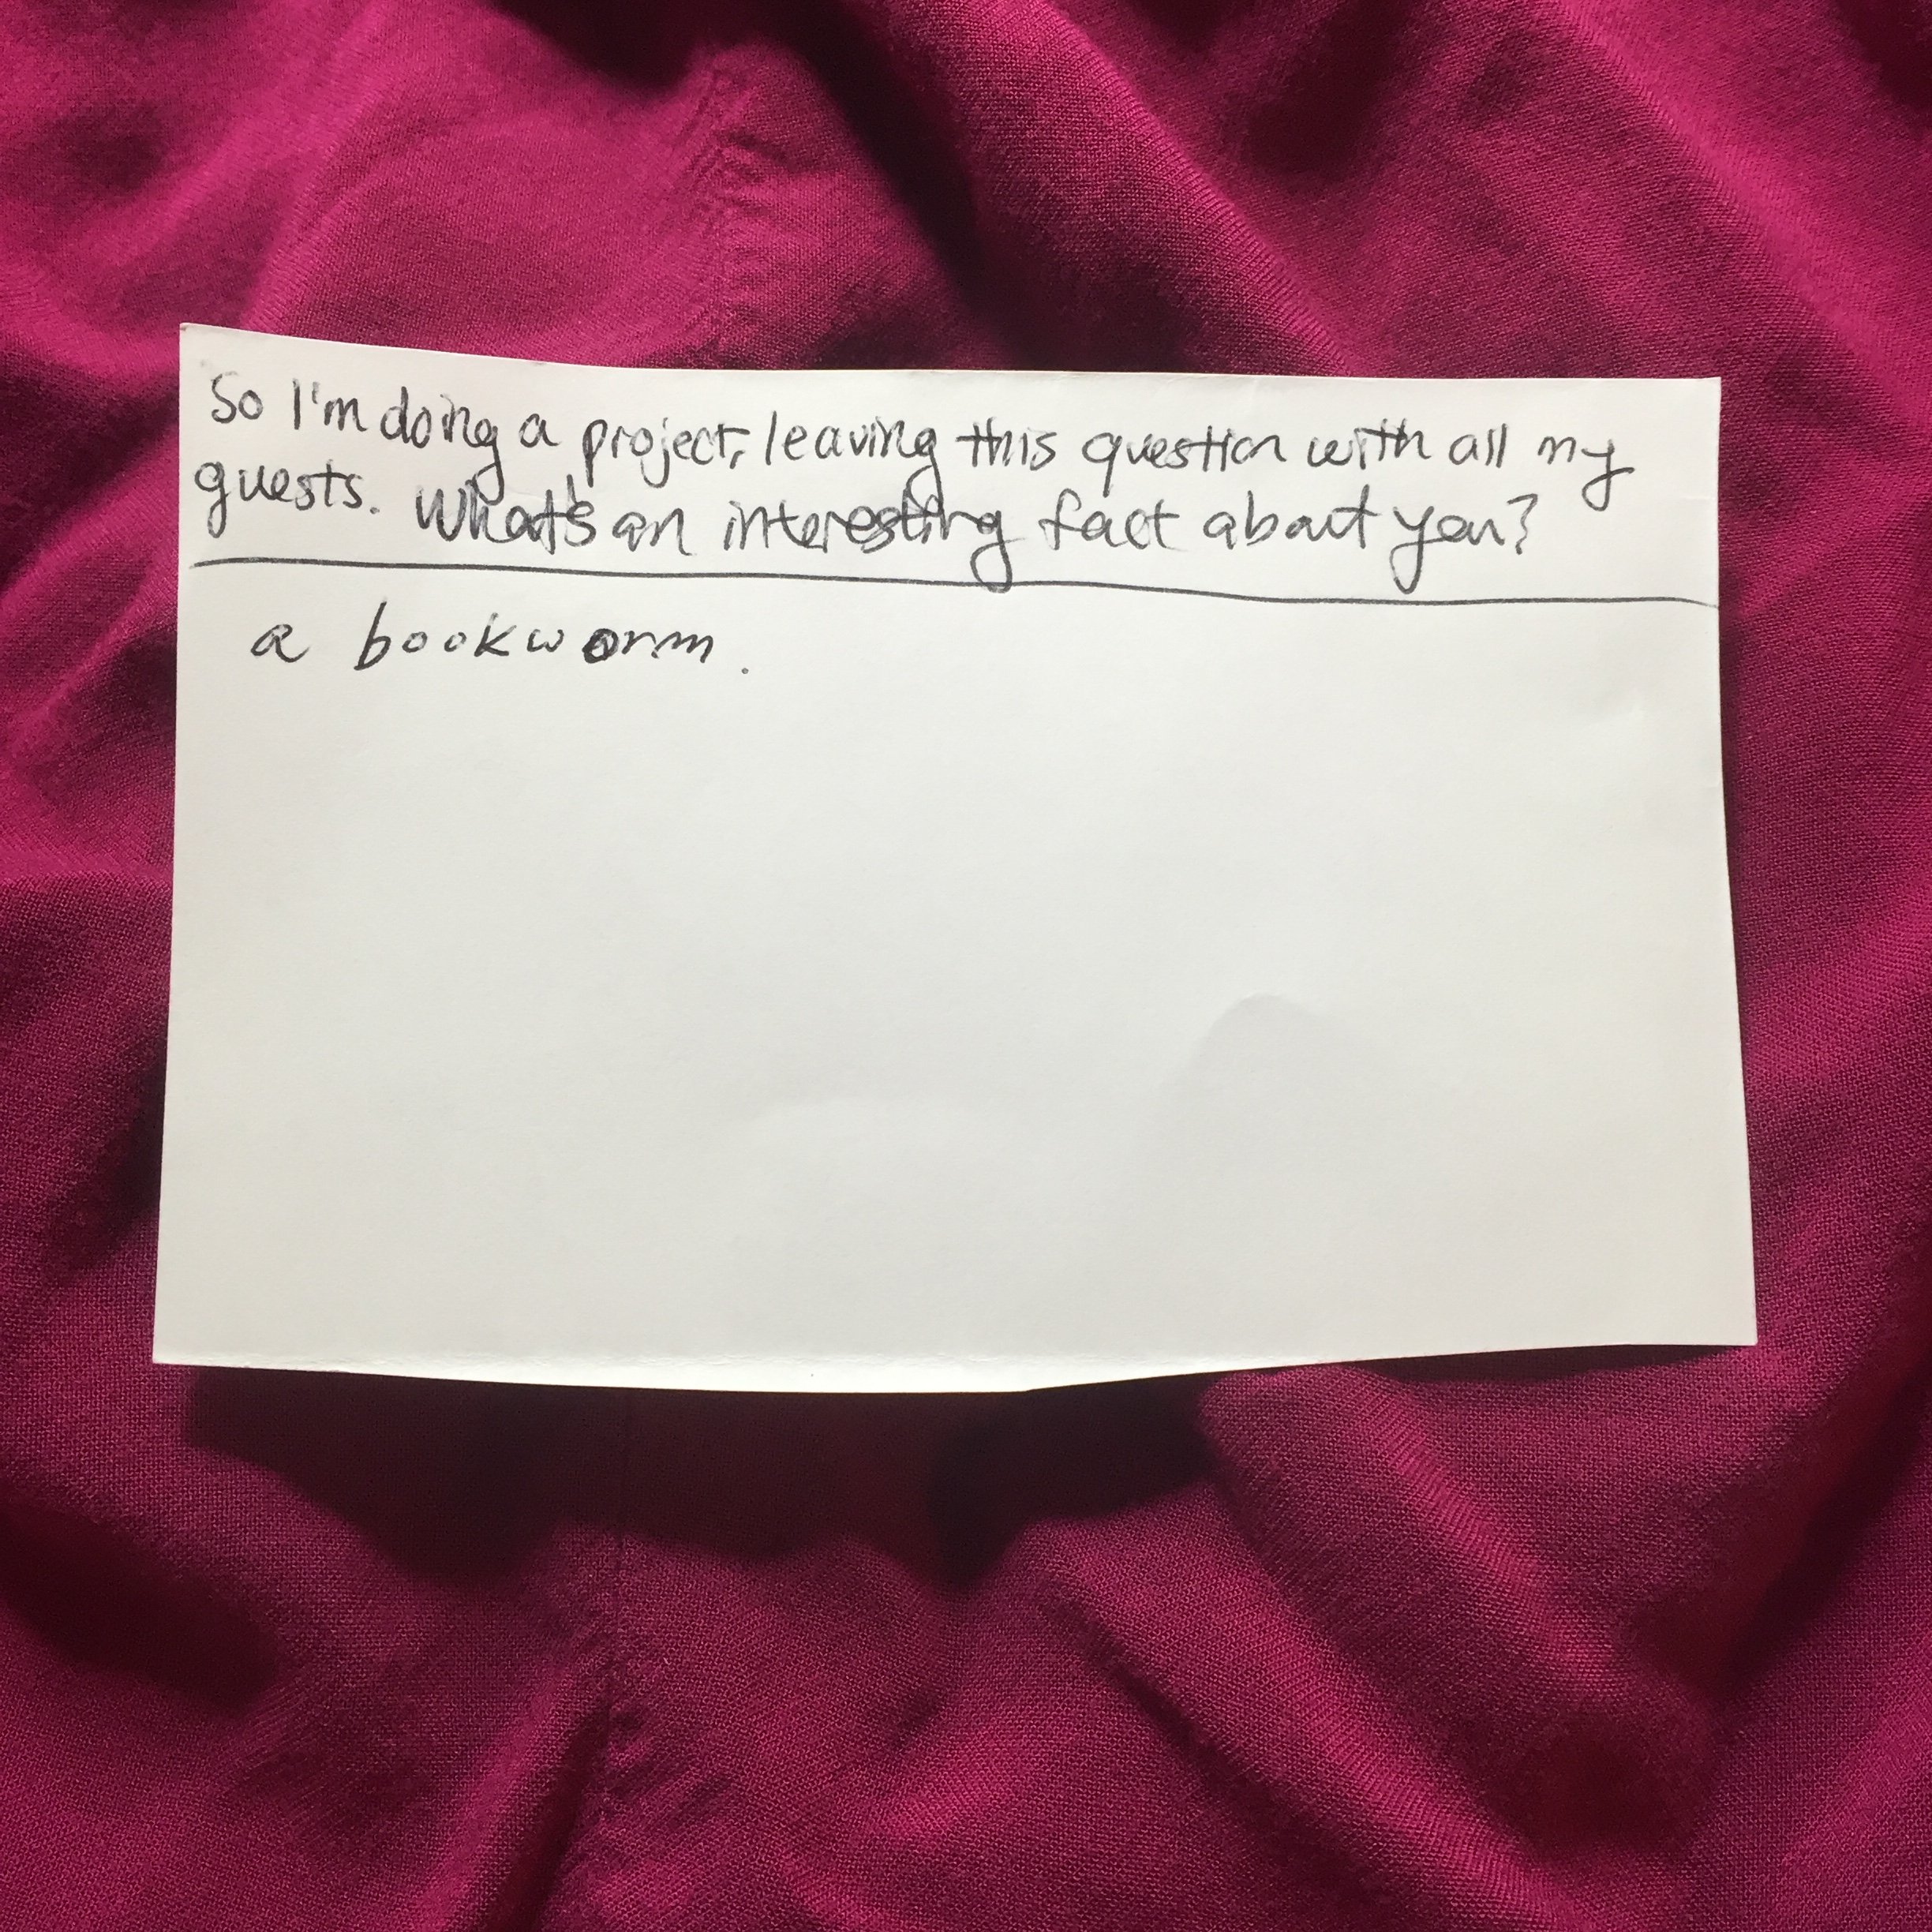 So I'm doing a project, leaving this question with all my
guests. What's an interesting fact about you?
a bookworm.